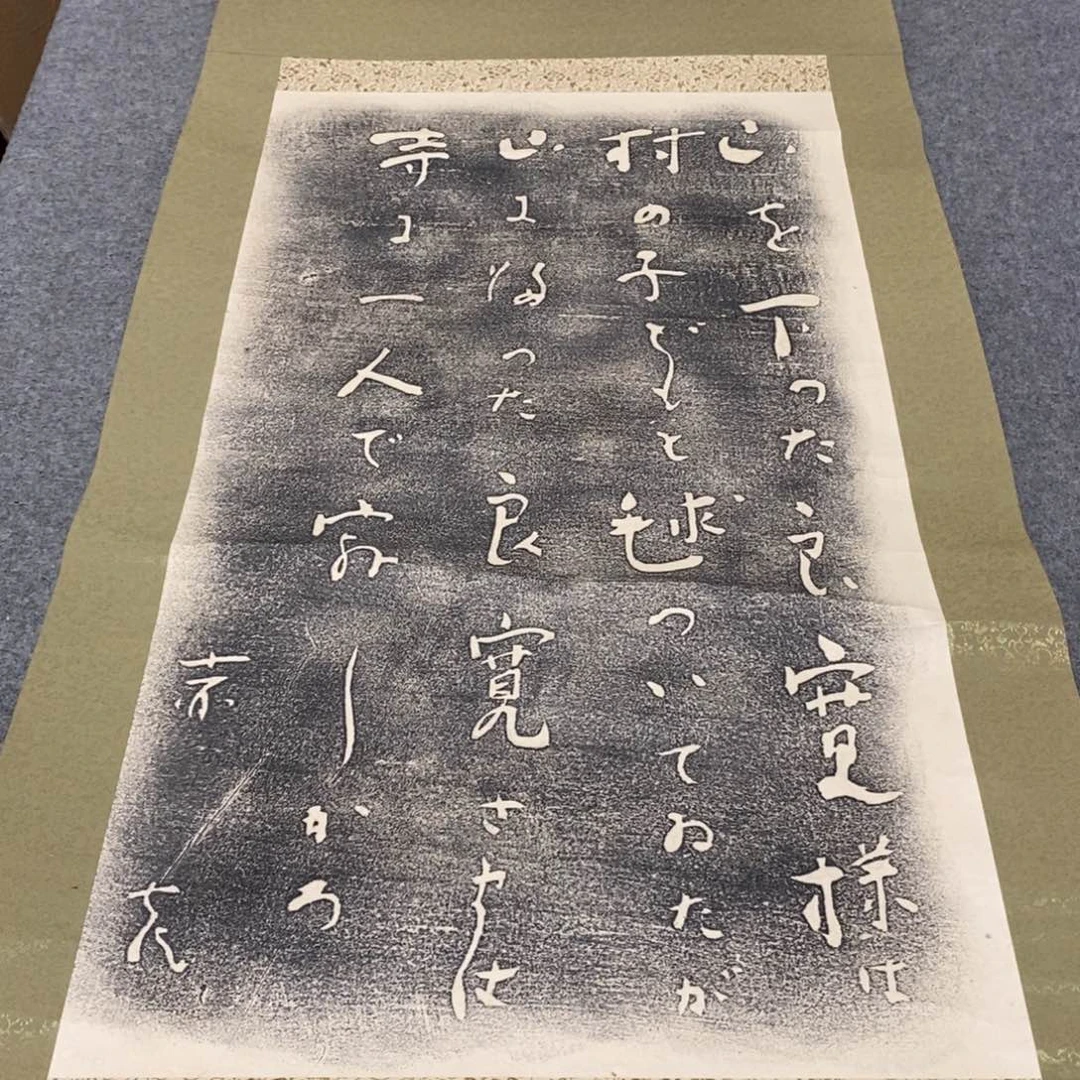 山を下つた良寛様は
村の子どもと毬ついてゐたが
山に帰つた良寛さまは
寺に一人で寂しかろ
赤彦